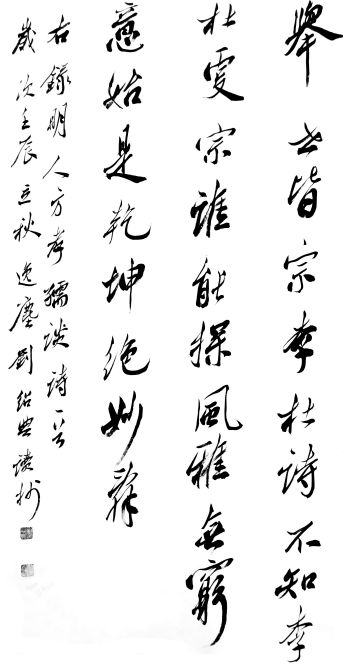 舉世皆宗李杜詩不知李
杜更宗誰能探風雅無窮
意始是乾坤絕妙辭
右錄明人方孝孺談詩一首
歲次壬辰立秋逸塵劉紹典